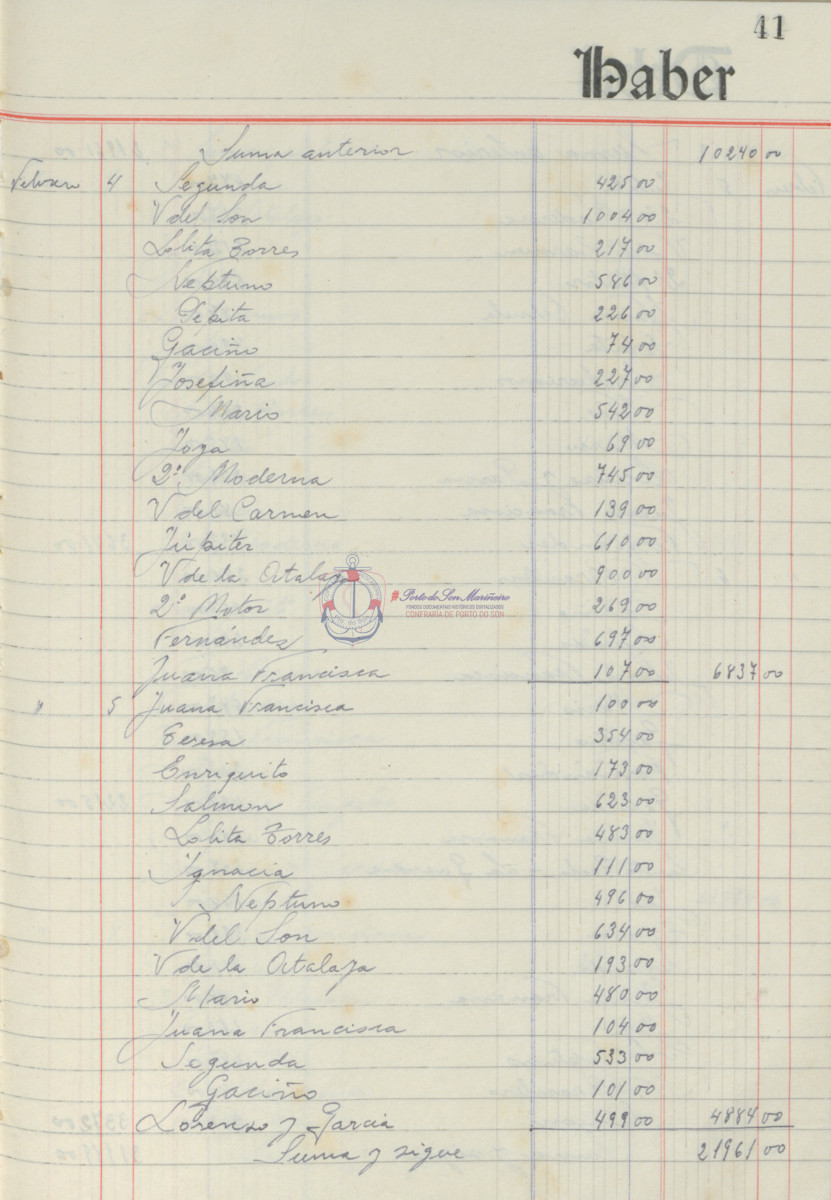 41
Haber
Suma anterior 10240 00
Febrero 4 Segunda 425 00
V del Son 1004 00
Lolita Torres 217 00
Neptuno 586 00
Pepita 226 00
Gaciño 74 00
Josefiña 227 00
Mario 542 00
Joya 69 00
2ª Moderna 745 00
V del Carmen 139 00
Júpiter 610 00
V de la Atalaya 900 00
2º Motor 269 00
Fernández 697 00
Juana Francisca 107 00 6837 00
" 5 Juana Francisca 100 00
Teresa 354 00
Enriquito 173 00
Salmon 623 00
Lolita Torres 483 00
Ignacia 111 00
Neptuno 496 00
V del Son 634 00
V de la Atalaya 193 00
Mario 480 00
Juana Francisca 104 00
Segunda 533 00
Gaciño 101 00
Lorenzo y Garcia 499 00 4884 00
Suma y sigue 21961 00
#Porto do Son Mariñeiro
FONDOS DOCUMENTAIS HISTÓRICOS DIXITALIZADOS
CONFRARÍA DE PORTO DO SON